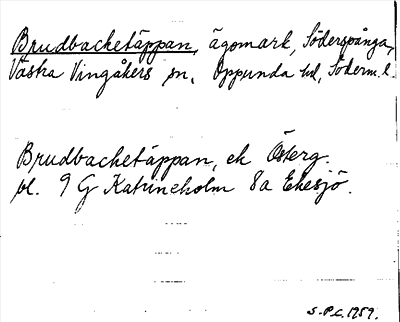 Brudbacketäppan, ägomark, Söderspånga,
Västra Vingåkers sn, Oppunda hd, Söderm. l.
Brudbacketäppan, ek Österg.
bl. 9 G Katrineholm 8a Ekesjö.
S.P.C. 1959.